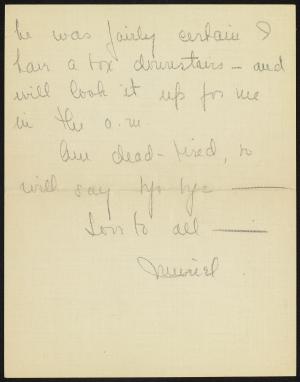 he was fairly certain I
have a box downstairs – and
will look it up for me
in the a.m.
Am dead-tired, so
will say bye bye ——
Love to all ——
Muriel.